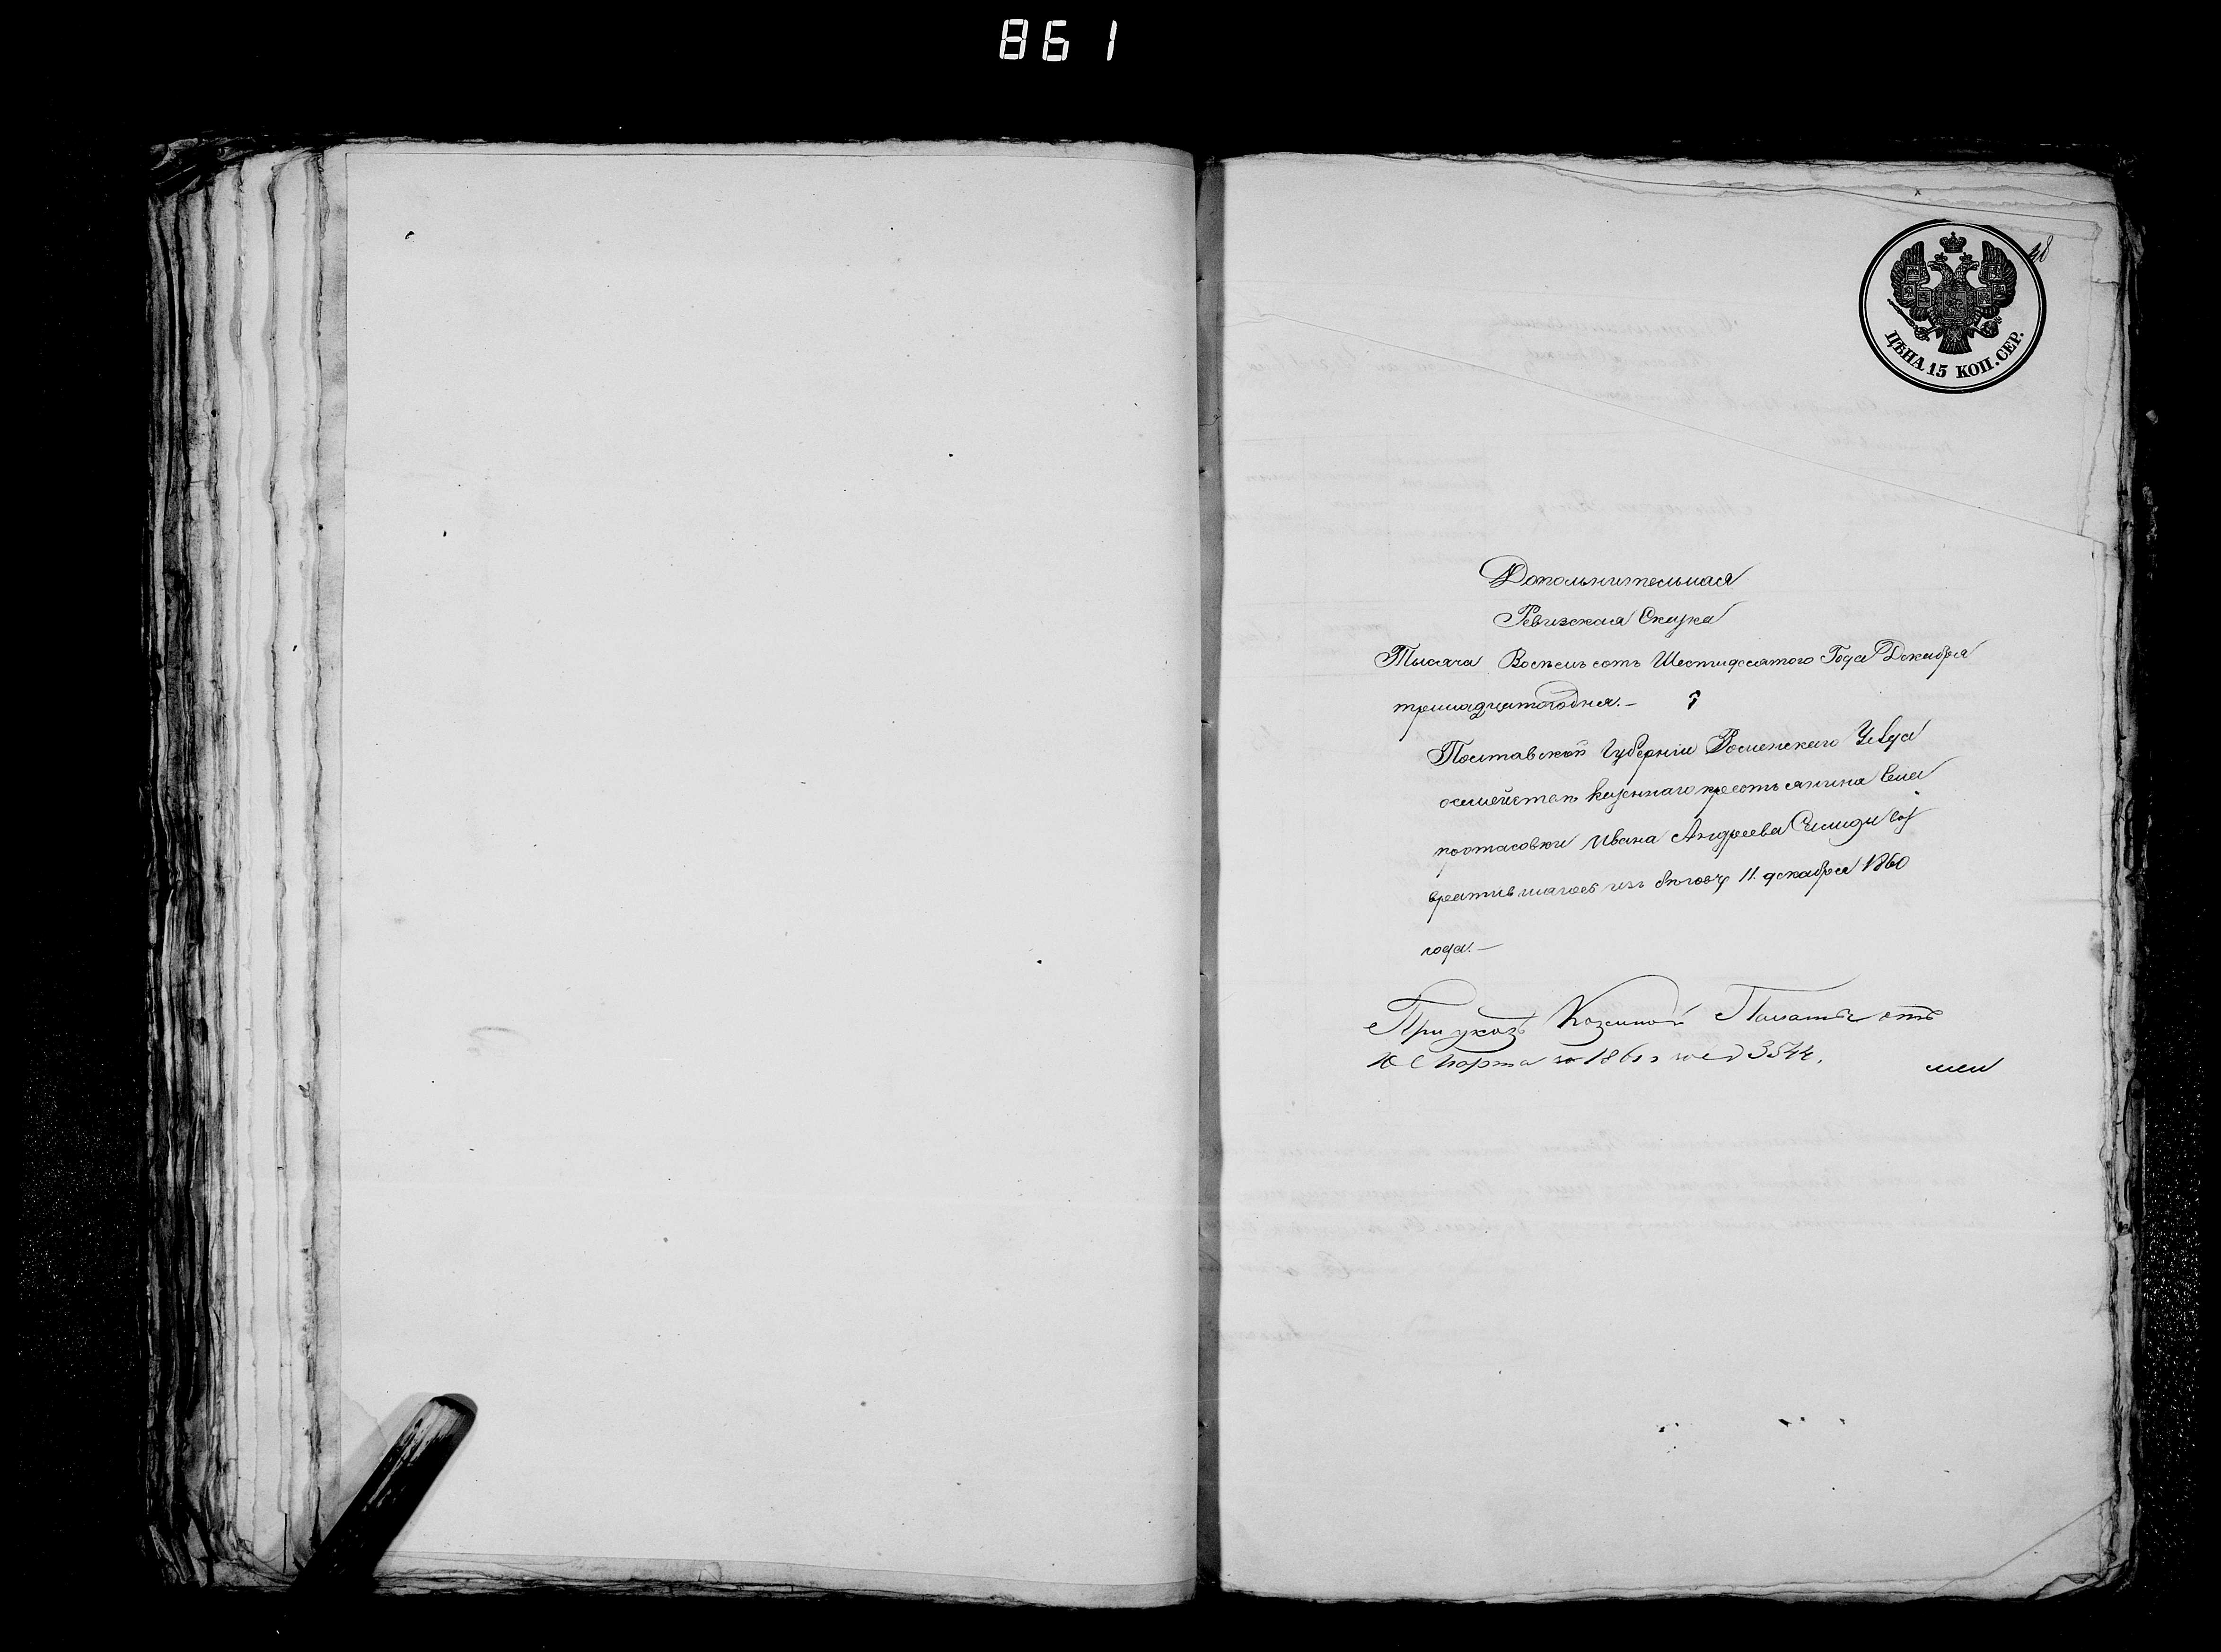 861
ЦѢНА 15 КОП. СЕР.
Дополнительная
Ревизская Скузка
Тысяча Восемь сотъ Шестидесятого Года Декабря
тринадцатого дня.—
Полтавской Губерніи Роменскаго Уезда
о семействѣ казеннаго крестьянина села
протасовки Ивана Андреева воз
вратившагося изъ бегов 11. декабря 1860
года.—
При указѣ Казенной Палаты отъ
Марта 1861 г за № 3544.